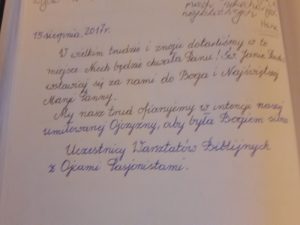 15 sierpnia, 2017r.
W wielkim trudzie i znoju dotarliśmy w to
miejsce. Niech będzie chwała Panu! Św. Janie
wstawiaj się za nami do Boga i Najświętszej
Maryi Panny.
My nasz trud ofiarujemy w intencji naszej
umiłowanej Ojczyzny, aby była Bogiem silna
Uczestnicy Warsztatów Biblijnych
z Ojcami Pasjonistami.